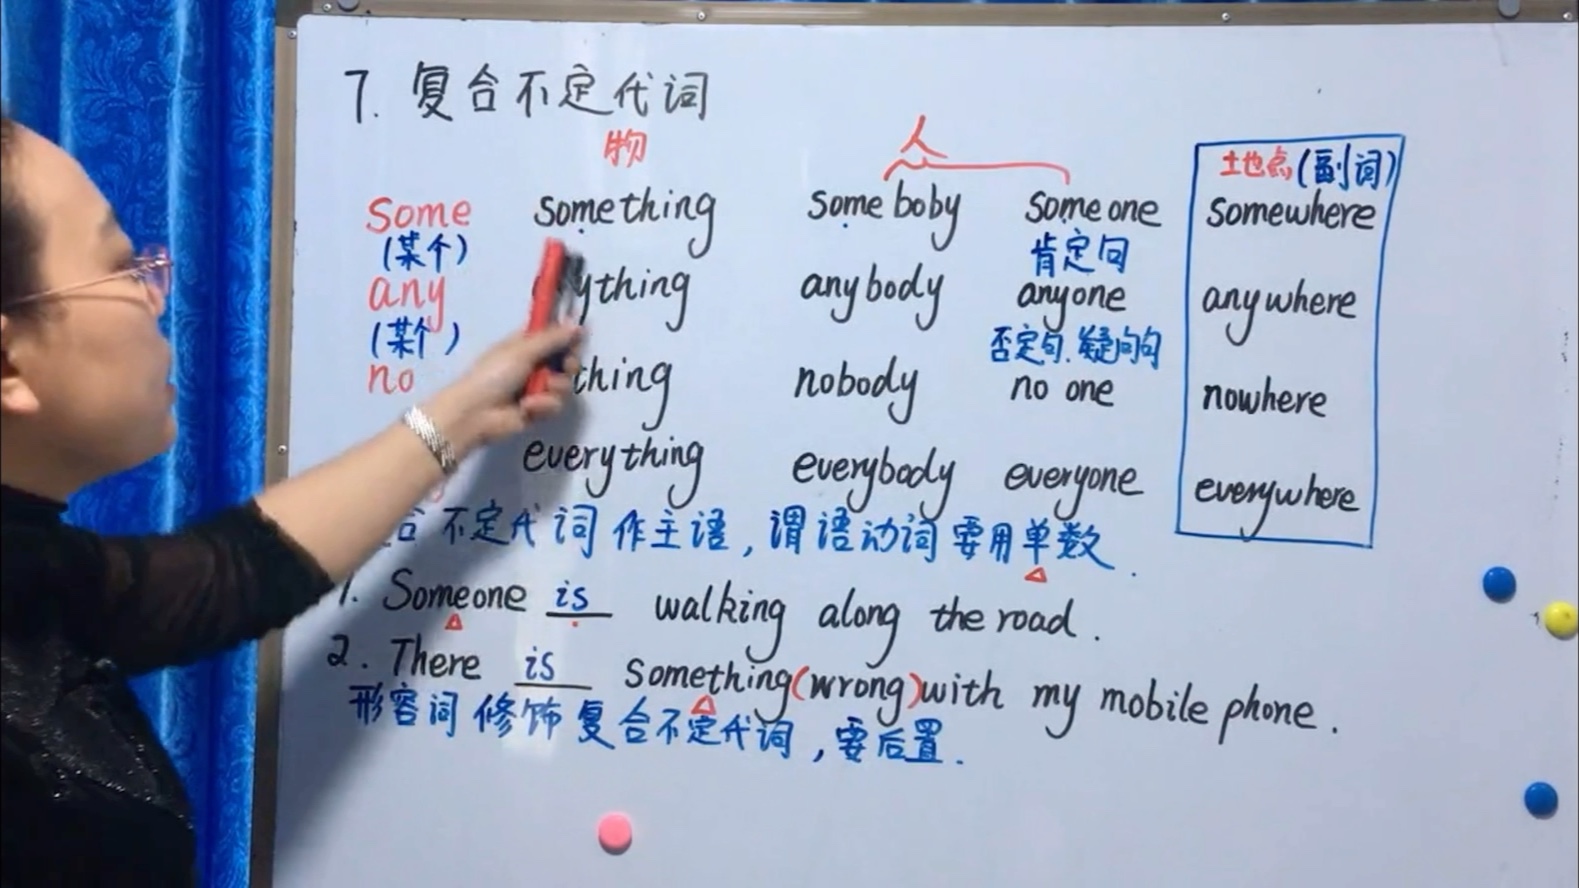 7. 复合不定代词
物 人
地点(副词)
some something someboby someone somewhere
(某个) 肯定句
any ything anybody anyone anywhere
(某个) 否定句、疑问句
no thing nobody no one nowhere
everything everybody everyone everywhere
合不定代词作主语，谓语动词要用单数.
1. Someone is walking along the road.
2. There is something(wrong)with my mobile phone.
形容词修饰复合不定代词，要后置.